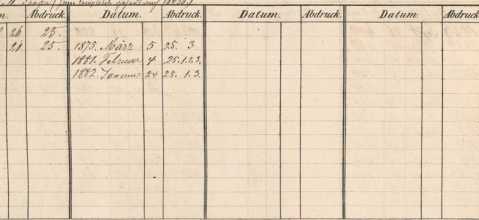 Abdruck. Datum. Abdruck. Datum. Abdruck. Datum.
26 25.
21 25. 1875. März 5 25. 3.
1881. Februar 4 25.1.2.3.
1882. Januar 24 25. 1.3.